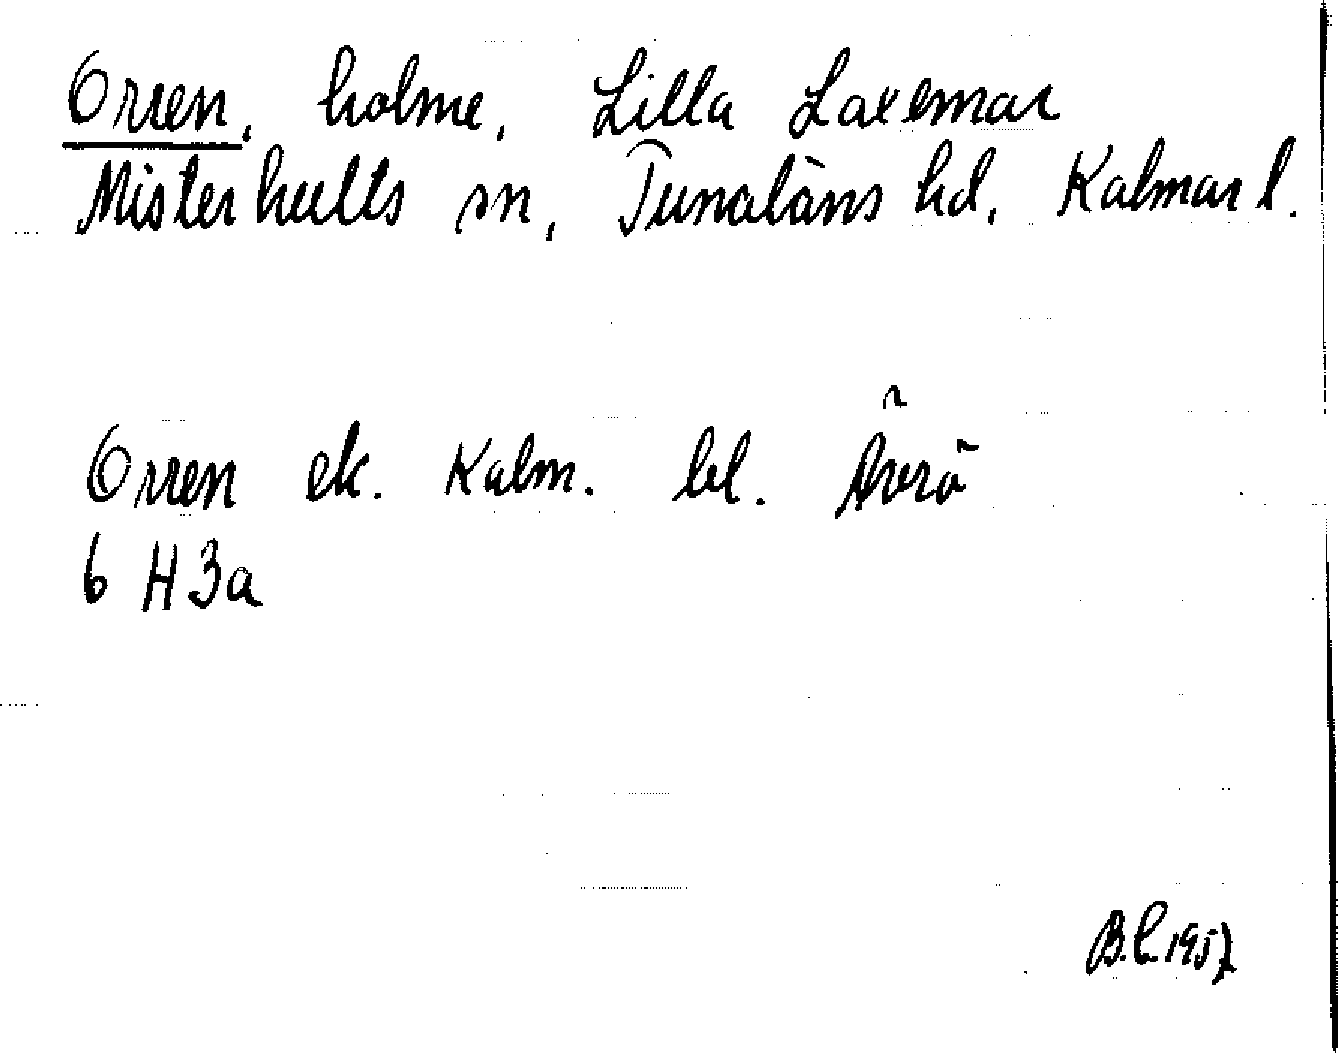 Orren, holme, Lilla Laxemar
Misterhults sn, Tunaläns hd, Kalmar l.
Orren ek. Kalm. bl. Ävrö
6 H 3a
B.L. 1957